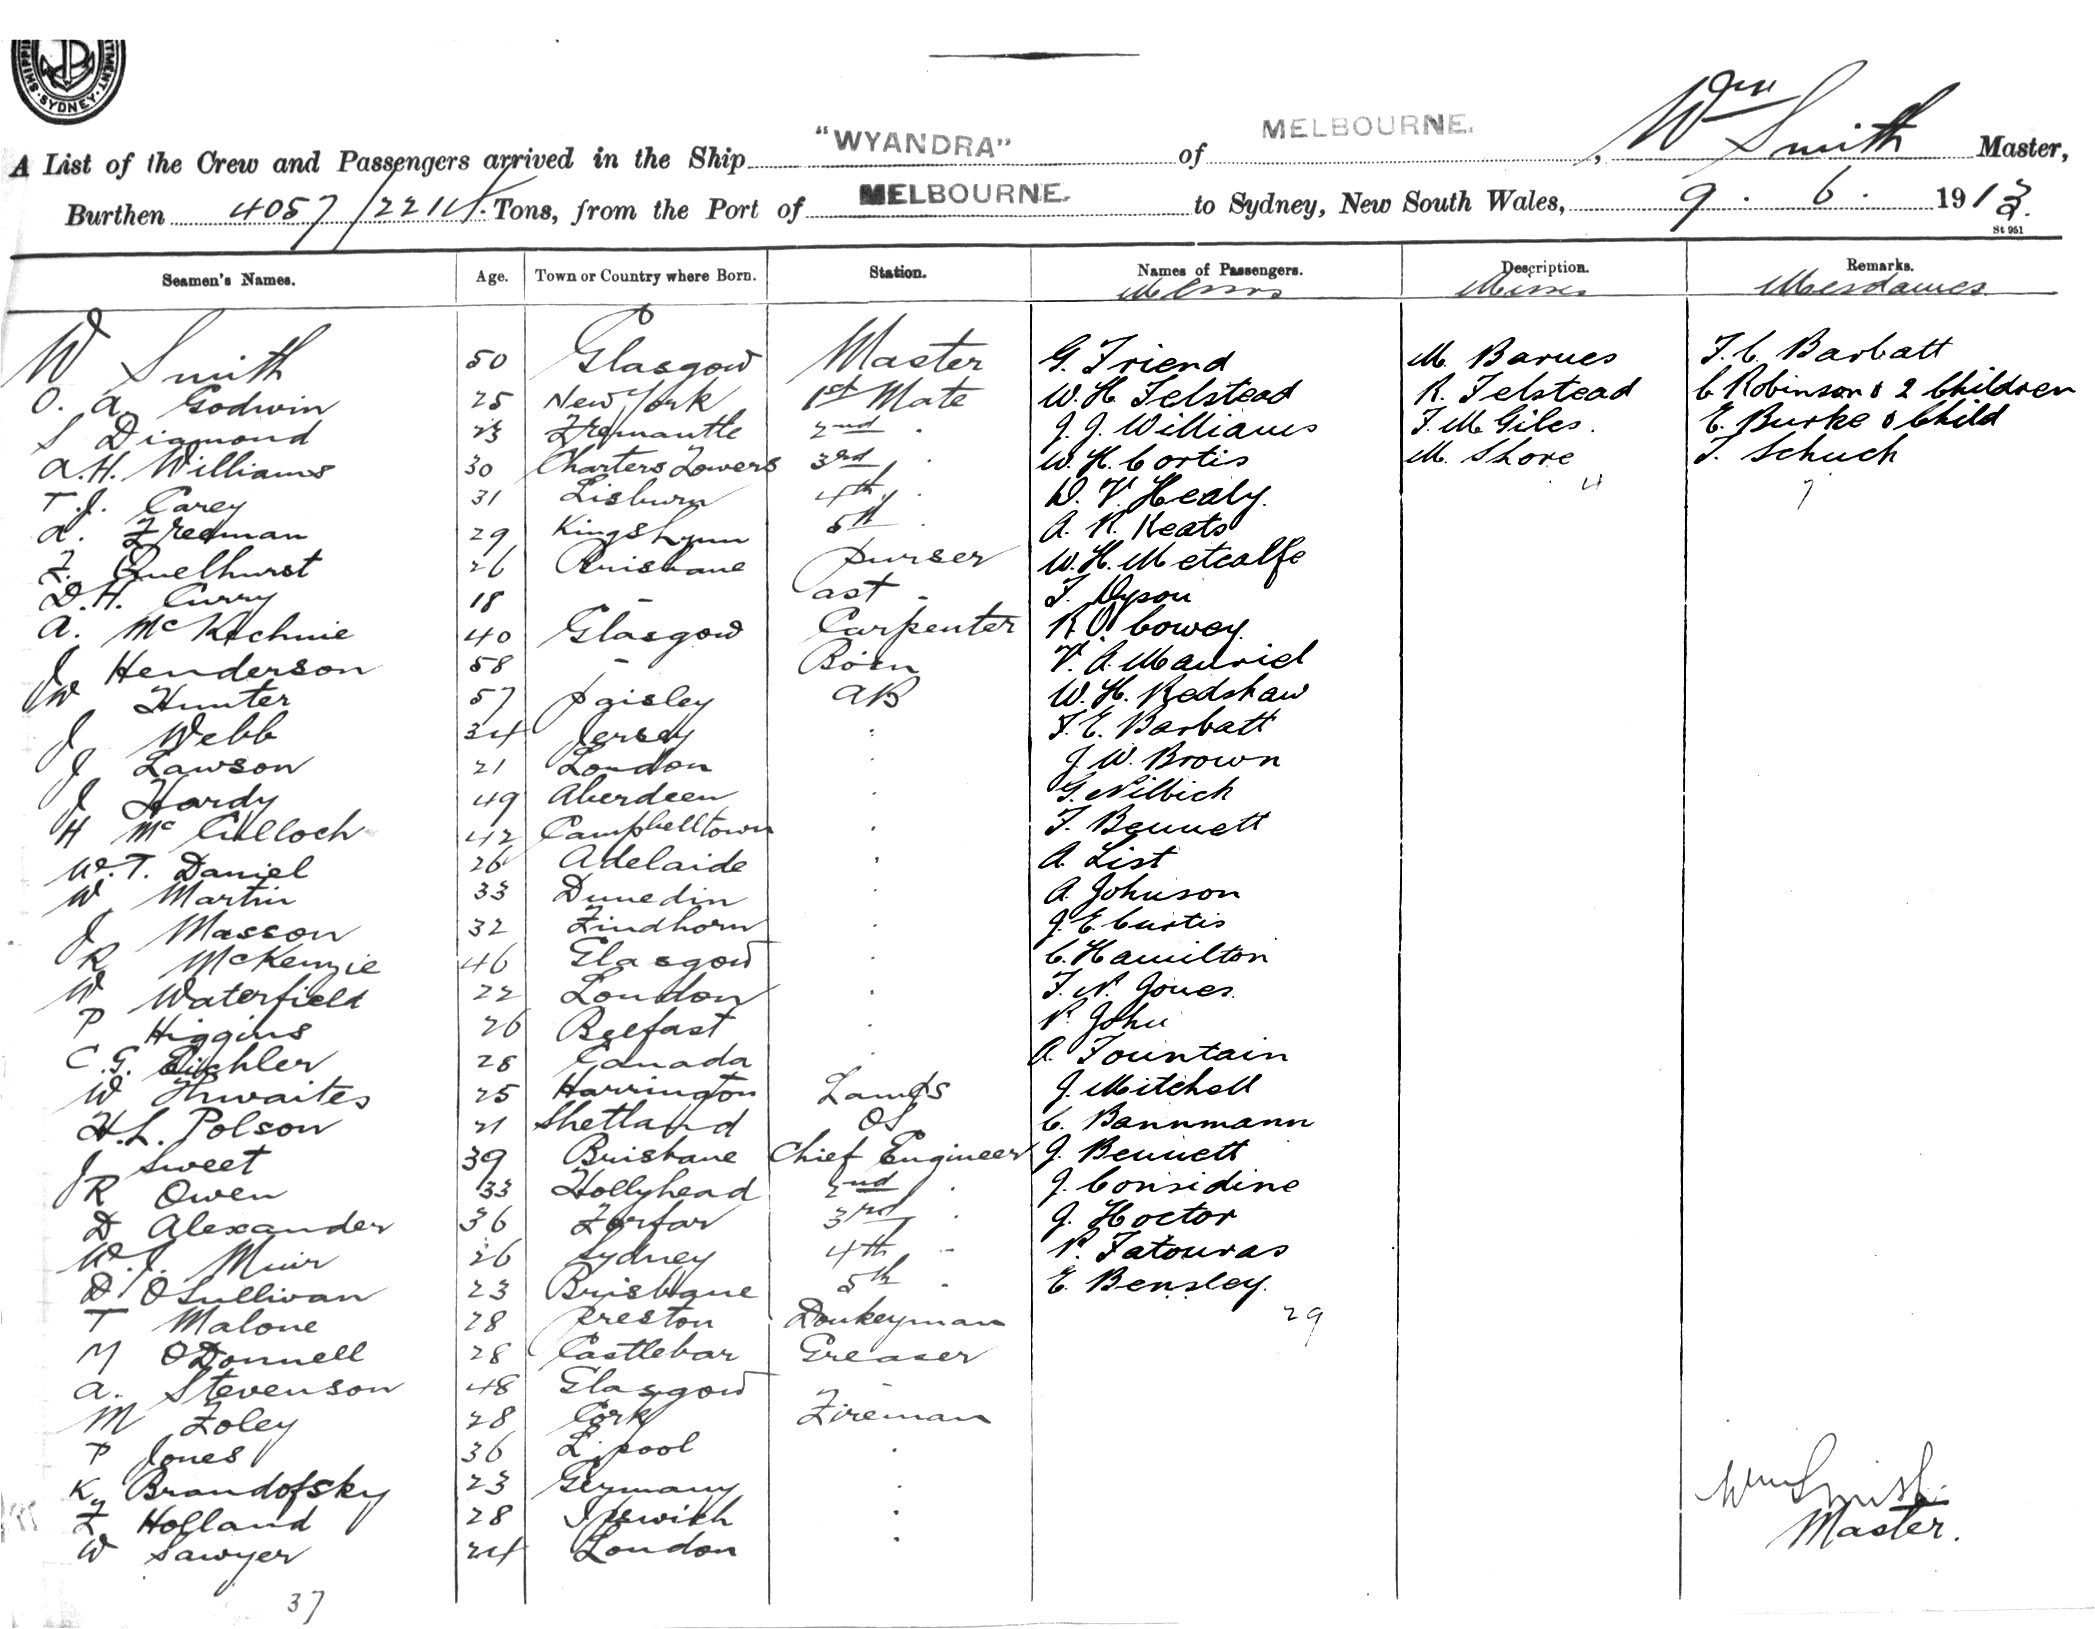 SHIPPING SYDNEY
A List of the Crew and Passengers arrived in the Ship "WYANDRA" of MELBOURNE. , Wm Smith Master,
Burthen 4057/2211 Tons, from the Port of MELBOURNE. to Sydney, New South Wales, 9 . 6 . 1913.
St 951
Seamen's Names. Age. Town or Country where Born. Station. Names of Passengers. Description. Remarks.
Messrs Misses Mesdames
W Smith 50 Glasgow Master G. Friend M. Barnes F. C. Barbatt
O. A. Godwin 25 New York 1st Mate W. H. Felstead R. Felstead C Robinson & 2 Children
S Diamond 23 Fremantle 2nd . J. J. Williams F. M Giles. E. Burke & Child
A.H. Williams 30 Charters Towers 3rd . W. H. Cortis M. Shore F. Schuch
T.J. Carey 31 Lisburn 4th . D. V. Healy. 4 7
A. Freeman 29 Kings Lynn 5th . A. R. Keats
F. Quelhurst 26 Brisbane Purser W. H. Metcalfe
D.H. Curry 18 - ast - F. Dyson
A. McKechnie 40 Glasgow Carpenter R O. Cowey
J Henderson 58 - Bosn V. A. Mauriel
W Hunter 57 Paisley AB W. H. Redshaw
J Webb 34 Jersey . F. E. Barbatt
J Lawson 21 London . J W. Brown
J Hardy 49 Aberdeen . G. Nilbich
H McCulloch 42 Campbelltown . F. Bennett
W.T. Daniel 26 Adelaide . A. List
W Martin 33 Dunedin . A. Johnson
J Masson 32 Findhorn . J. E. Curtis
R McKenzie 46 Glasgow . C. Hamilton
W Waterfield 22 London . F. N. Jones.
P Higgins 26 Belfast . P. John
C.G. Eichler 28 Canada . A. Fountain
W Thwaites 25 Harrington Lamps J. Mitchell
H.L. Polson 21 Shetland OS C. Bannmann
J Sweet 39 Brisbane Chief Engineer J. Bennett
R Owen 33 Hollyhead 2nd . J. Considine
D Alexander 36 Forfar 3rd . J. Hoctor
W.J. Muir 26 Sydney 4th - P. Fatouras
D O'Sullivan 23 Brisbane 5th . E. Bensley.
T Malone 28 Preston Donkeyman 29
M O'Donnell 28 Castlebar Greaser
A. Stevenson 48 Glasgow -
M Foley 28 Cork Fireman
P Jones 36 L.pool .
K Brandofsky 23 Germany .
F Holland 28 Ipswich .
W Sawyer 24 London .
Wm Smith.
Master.
37